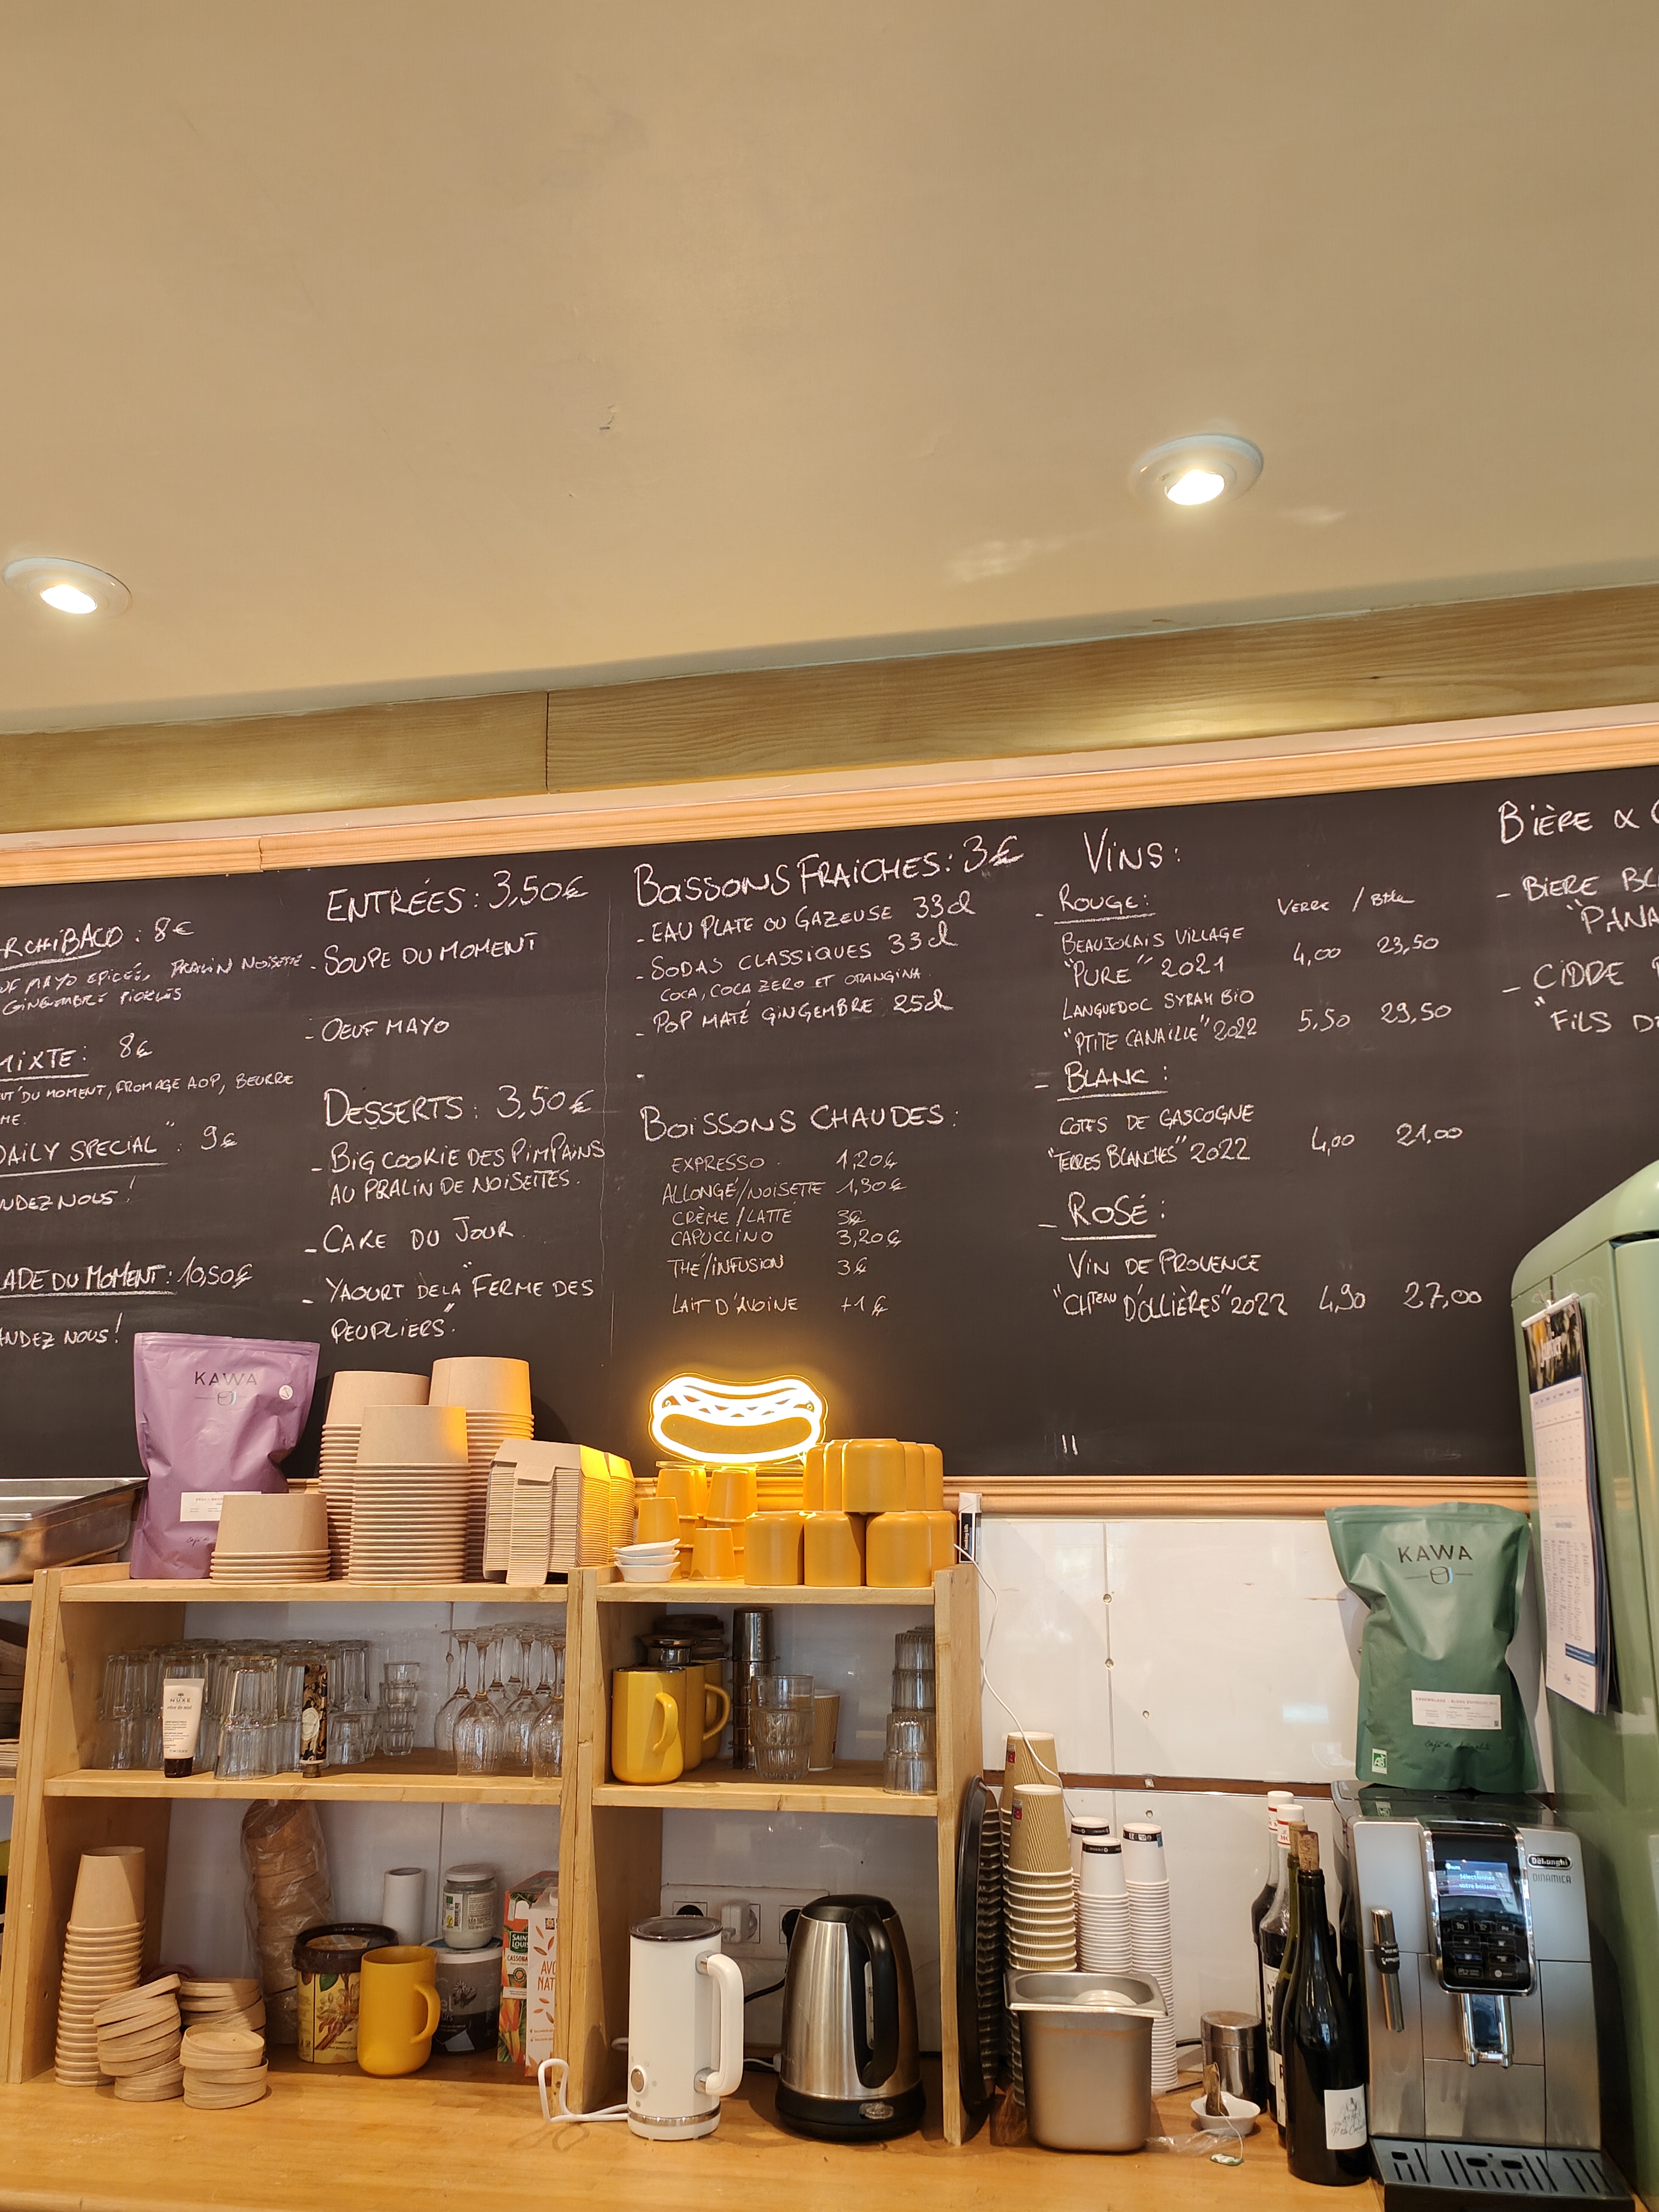 ARCHIBALD : 8€
OEUF MAYO ÉPICÉS, PRALIN NOISETTE
GINGEMBRE PICKLES
MIXTE : 8€
DU MOMENT, FROMAGE AOP, BEURRE
DAILY SPECIAL" : 9€
NDEZ NOUS !
ADE DU MOMENT : 10,50€
ANDEZ NOUS !
ENTRÉES : 3,50€
- SOUPE DU MOMENT
- OEUF MAYO
DESSERTS : 3,50€
- BIG COOKIE DES PIMPAINS
AU PRALIN DE NOISETTES.
- CAKE DU JOUR
- YAOURT DE LA "FERME DES
PEUPLIERS".
BOISSONS FRAICHES : 3€
- EAU PLATE OU GAZEUSE 33cl
- SODAS CLASSIQUES 33cl
COCA, COCA ZERO ET ORANGINA.
- POP MATÉ GINGEMBRE 25cl
-
BOISSONS CHAUDES :
EXPRESSO 1,20€
ALLONGÉ/NOISETTE 1,30€
CRÈME/LATTÉ 3€
CAPUCCINO 3,20€
THÉ/INFUSION 3€
LAIT D'AVOINE +1€
VINS :
- ROUGE : VERRE / Btlle
BEAUJOLAIS VILLAGE
"PURE" 2021 4,00 23,50
LANGUEDOC SYRAH BIO
"PTITE CANAILLE" 2022 5,50 29,50
- BLANC :
COTES DE GASCOGNE
"TERRES BLANCHES" 2022 4,00 21,00
- ROSÉ :
VIN DE PROVENCE
"CHTEAU D'OLLIÈRES" 2022 4,90 27,00
BIÈRE & C
- BIERE BL
"PANA
- CIDRE
"FILS DE
KAWA
KAWA
NUXE
SAINT
LOUIS
DeLonghi
DINAMICA
Sélectionnez
votre boisson